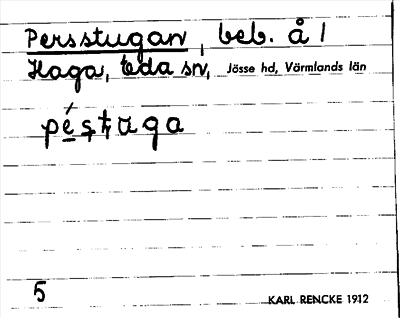 Persstugan, beb. å 1
Haga, Eda sn, Jösse hd, Värmlands län
péştuga
5
KARL RENCKE 1912